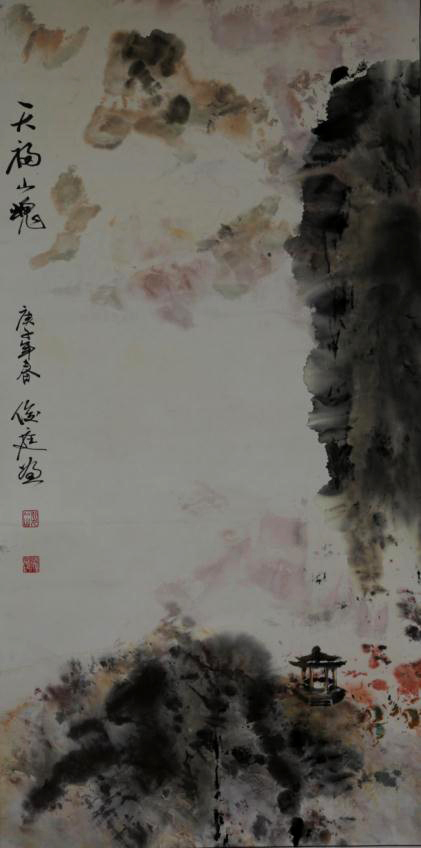 天福山魂
庚子年春
俊庭